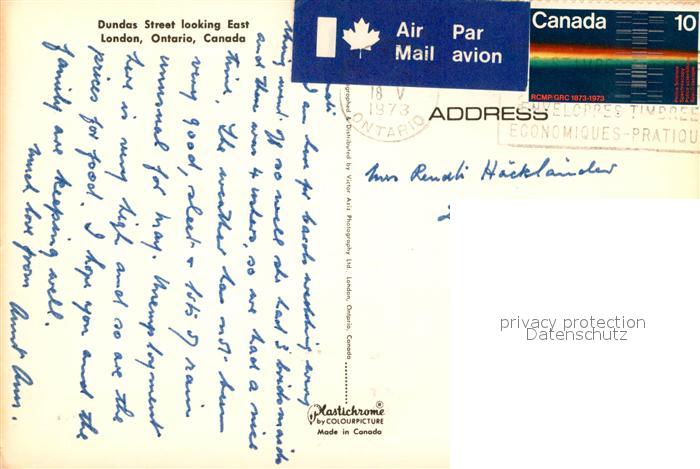 Dundas Street looking East
London, Ontario, Canada
Air Mail
Par avion
Canada 10
RCMP/GRC 1873-1973
18 V
1973
ONTARIO
ENVELOPPES TIMBRÉES
ECONOMIQUES-PRATIQU
ADDRESS
Mrs Renati Häcklander
I am here for Carols wedding every
thing went off so well she had 3 bridesmaids
and there were 4 ushers, so we had a nice
time. The weather has not been
very good, sleet & lots of rain
unusual for May. Unemployment
here is very high and so are the
prices for food. I hope you and the
family are keeping well.
Much love from Aunt Ann.
Distributed by Victor Aziz Photography Ltd. London, Ontario, Canada
Plastichrome ®
by COLOURPICTURE
Made in Canada
privacy protection
Datenschutz